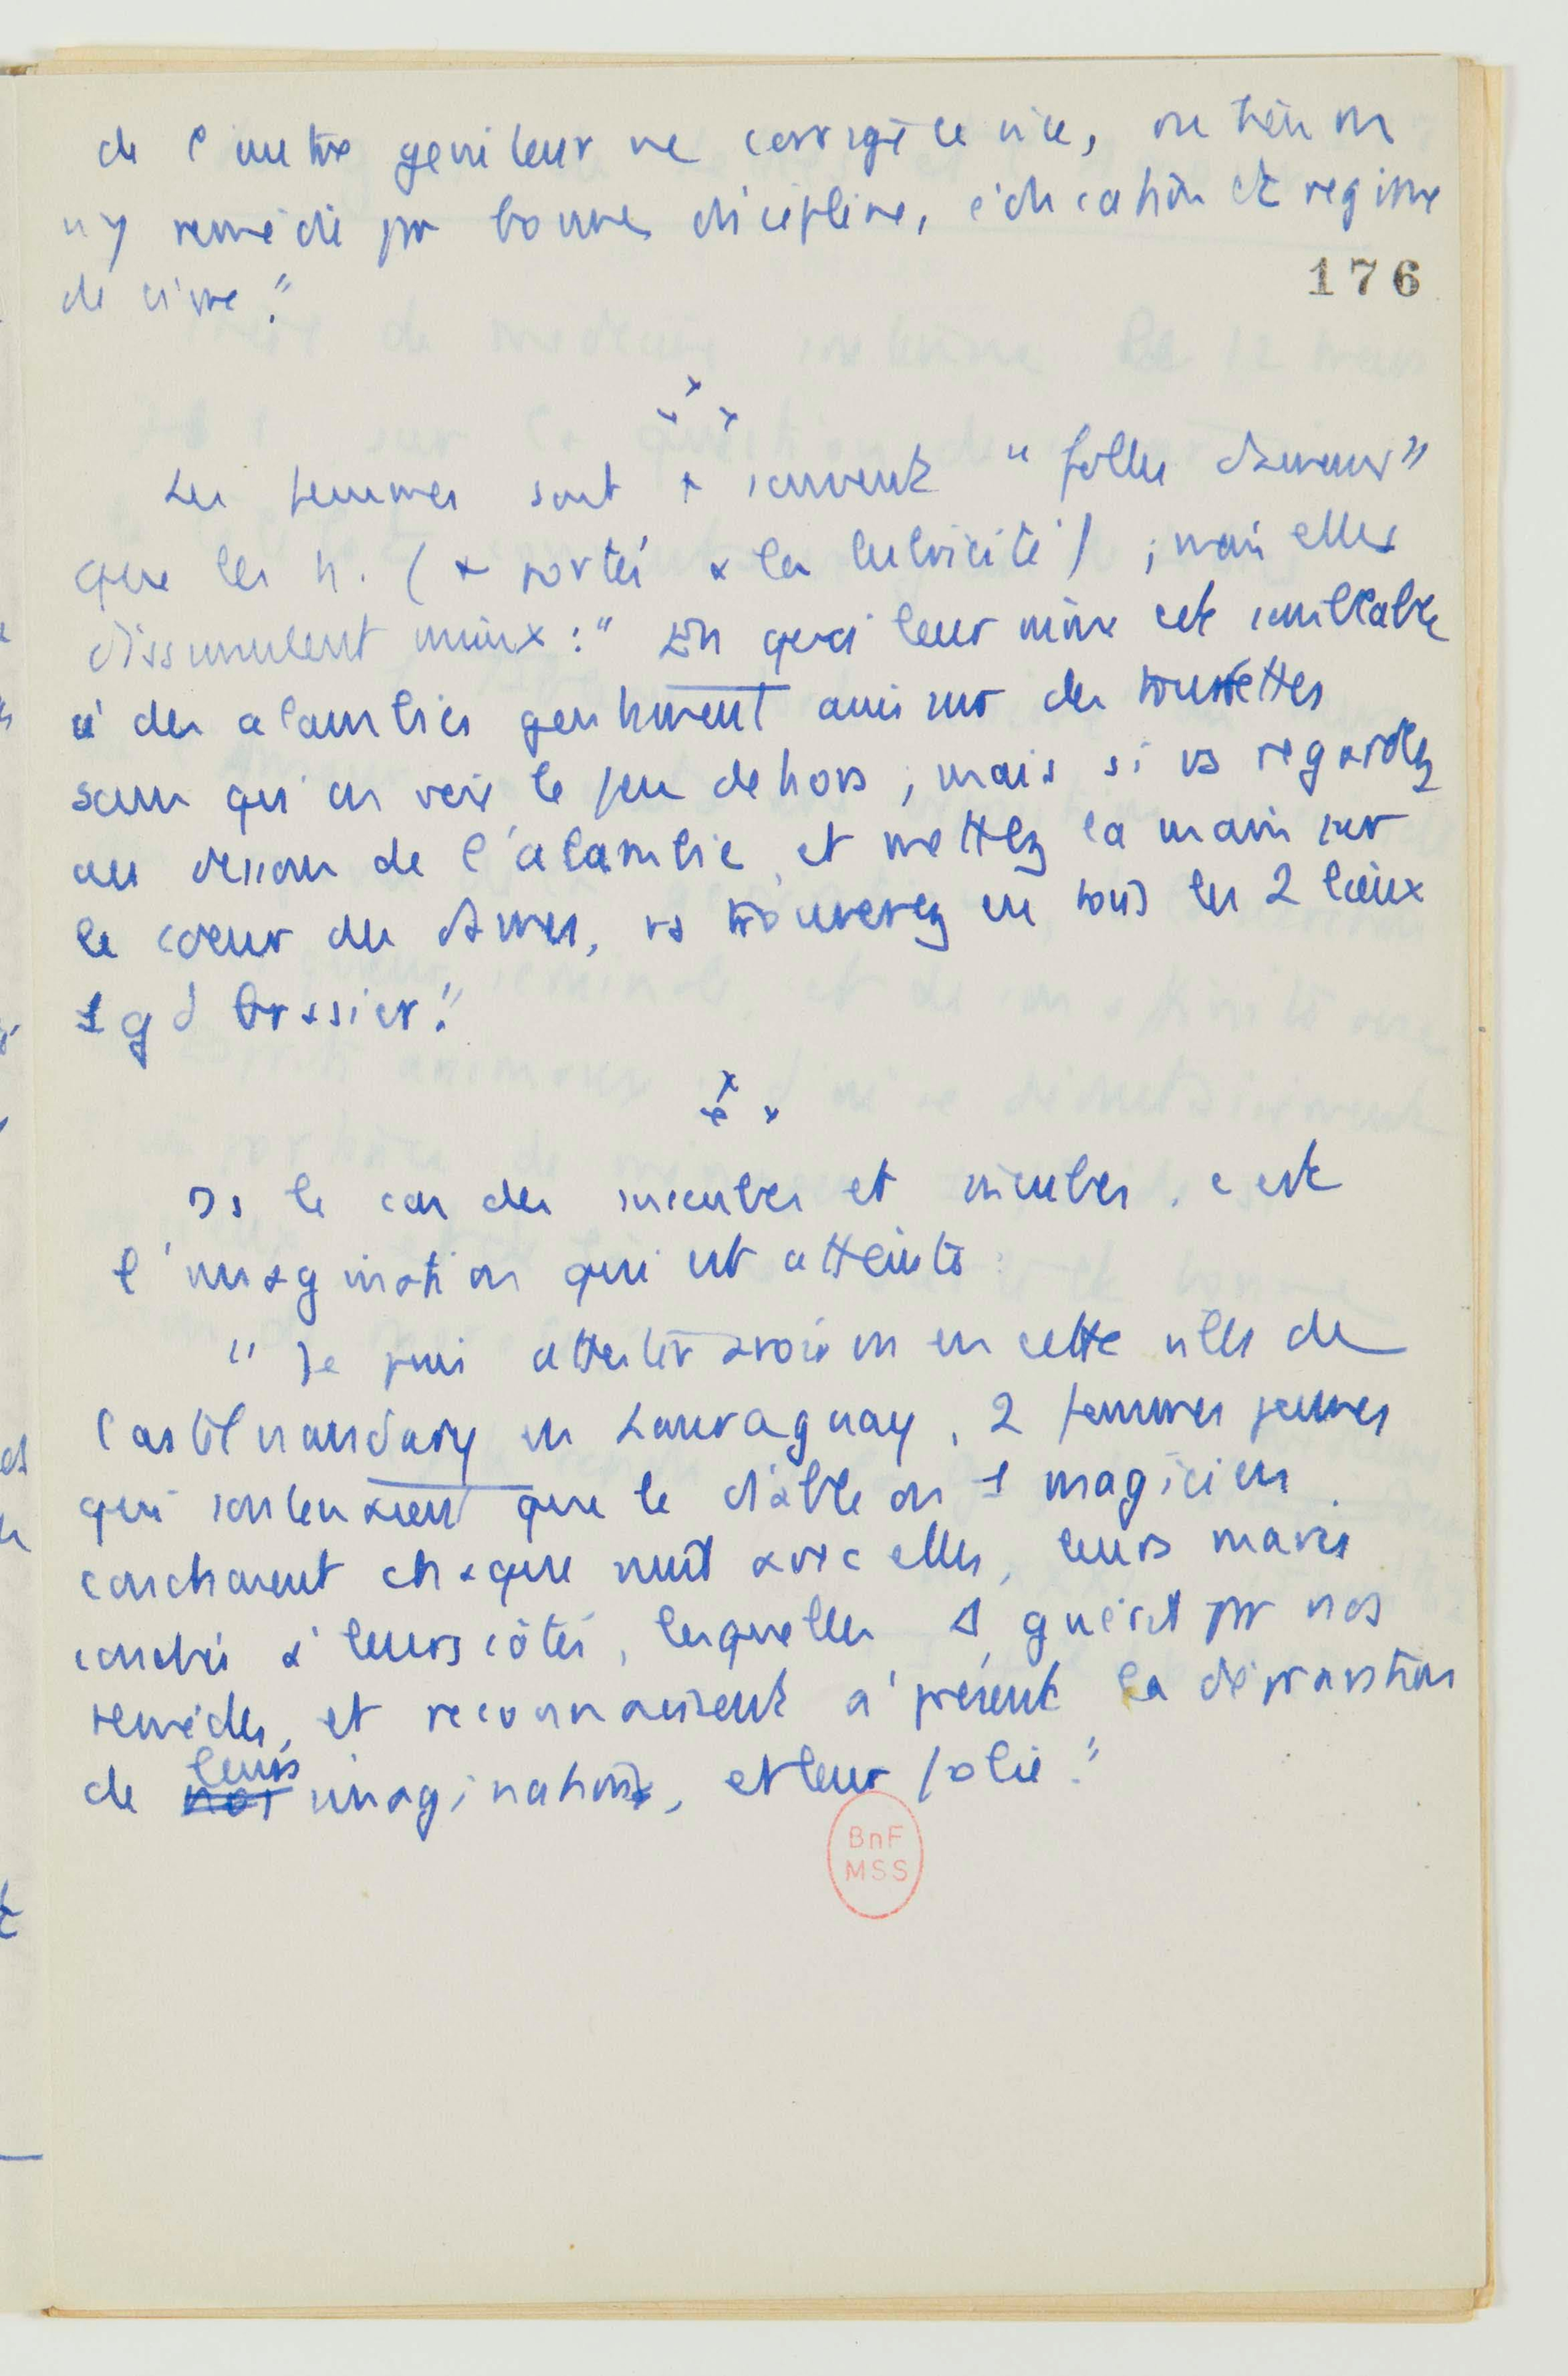 de l'autre geniteur ne corrige ce vice, ou bien on
n'y remédie pr bonne discipline, éducation et régime
de vivre."
176
x
x x
Les femmes sont + souvent "folles d'amour"
que les h. (+ portés à la lubricité) ; mais elles
dissimulent mieux : " En quoi leur mine est semblable
à des alambics gentiment assis sur des tourettes
sans qu'on voie le feu dehors ; mais si vs regardez
au dessous de l'alambic, et mettez la main sur
le coeur des dames, vs trouverez en tous les 2 lieux
1 gd brasier."
x
x x
Ds le cas des incubes et succubes, c'est
l'imagination qui est atteinte :
" Je puis attester avoir vu en cette ville de
Castelnaudary en Lauraguay, 2 femmes jeunes
qui soutenaient que le diable ou 1 magicien
couchaient chaque nuit avec elles, leurs maris
couchés à leurs côtés, lesquelles guérirent pr nos
remèdes, et reconnaissent à présent la dépravation
de nos leurs imaginations, et leur folie."
BnF
MSS